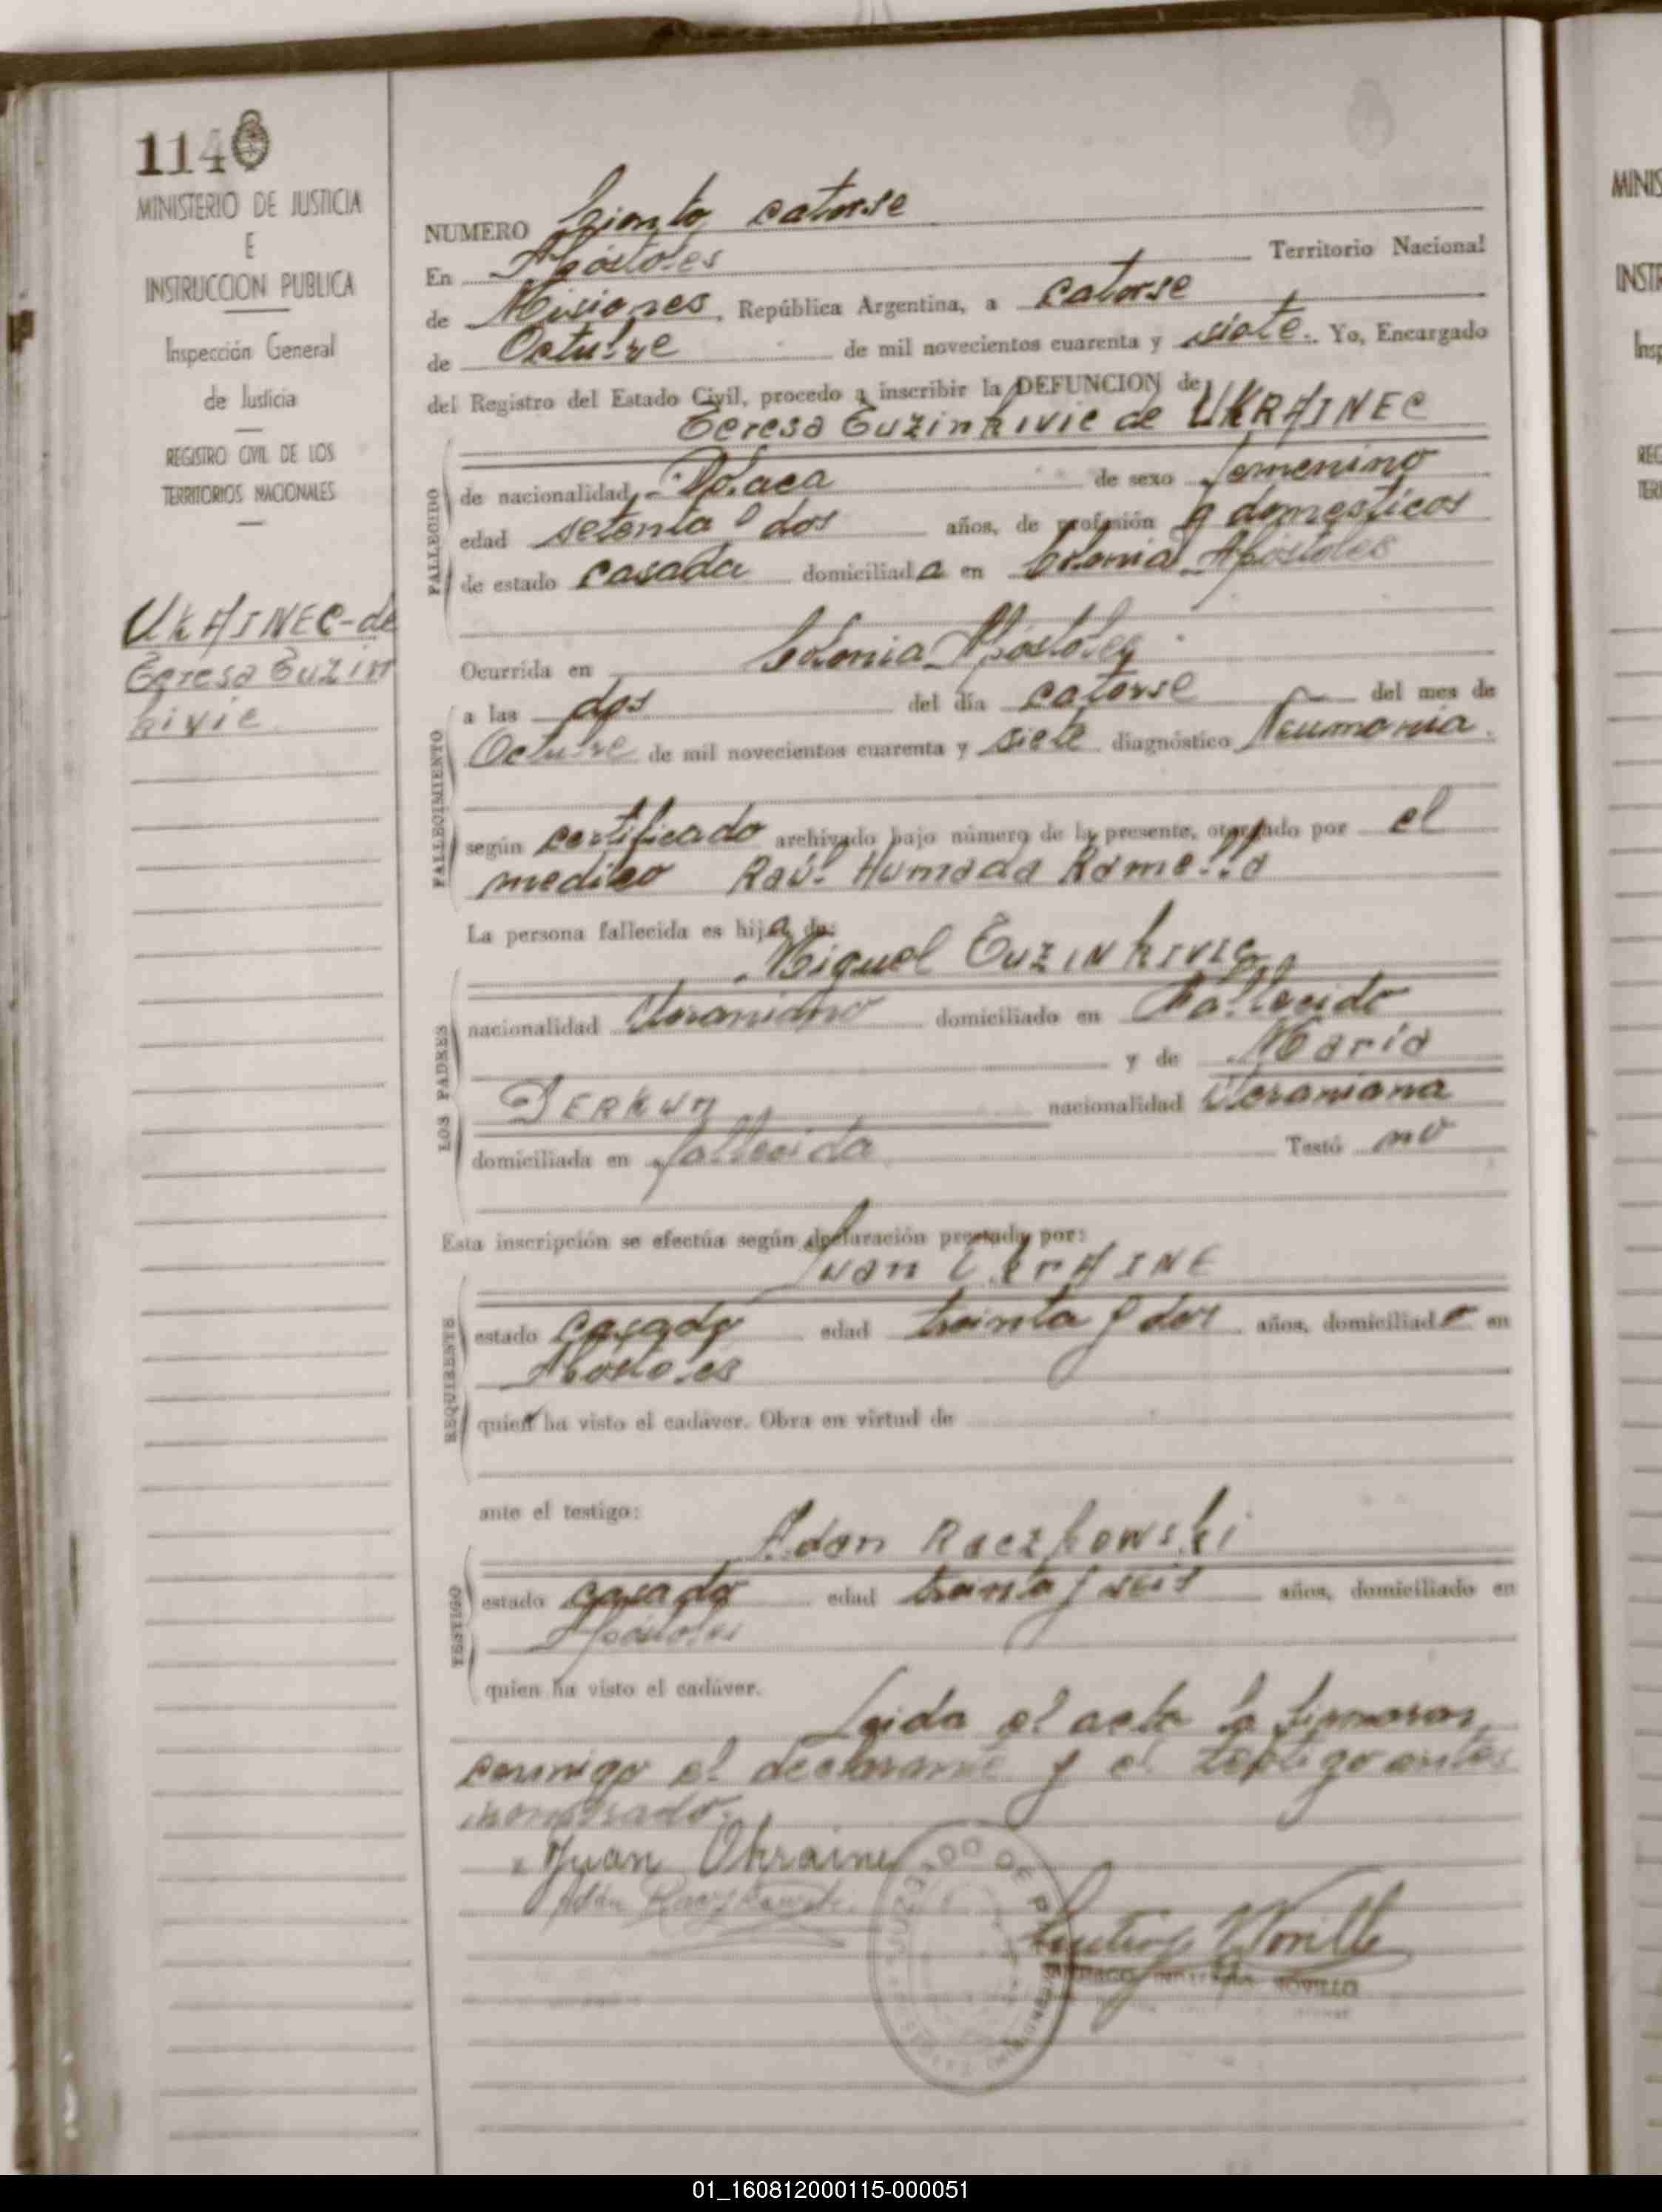 114
MINISTERIO DE JUSTICIA
E
INSTRUCCION PUBLICA
Inspección General
de Justicia
REGISTRO CIVIL DE LOS
TERRITORIOS NACIONALES
UKAINEC-de
Teresa Tuzin
kivic
NUMERO Ciento catorse
En Apóstoles Territorio Nacional
de Misiones, República Argentina, a catorse
de Octubre de mil novecientos cuarenta y siete. Yo, Encargado
del Registro del Estado Civil, procedo a inscribir la DEFUNCION de
Teresa Tuzinkivic de UKRAINEC
FALLECIDO
de nacionalidad Polaca de sexo femenino
edad setenta y dos años, de profesión q domesticos
de estado casada domiciliada en Colonia Apóstoles
Ocurrida en Colonia Apóstoles
FALLECIMIENTO
a las dos del día catorse del mes de
Octubre de mil novecientos cuarenta y siete diagnóstico Neumonia.
según certificado archivado bajo número de la presente, otorgado por el
medico Raúl Humada Ramella
La persona fallecida es hija de:
Miguel Tuzinkivic
LOS PADRES
nacionalidad Ucraniano domiciliado en Fallecido
y de Maria
DERKUN nacionalidad Ucraniana
domiciliada en fallecida Testó no
Esta inscripción se efectúa según declaración prestada por:
Juan UkrAINE
REQUIRENTE
estado casado edad treinta y dos años, domiciliado en
Apostoles
quien ha visto el cadáver. Obra en virtud de
ante el testigo:
Adan Raczkowski
TESTIGO
estado casado edad treinta y seis años, domiciliado en
Apóstoles
quien ha visto el cadáver.
Leida el acta la firmaron
conmigo el declarante y el testigo antes
nombrado.
Juan Ukraine
Adán Raczkowski
JUZGADO DE P
NOVILLO
01_160812000115-000051